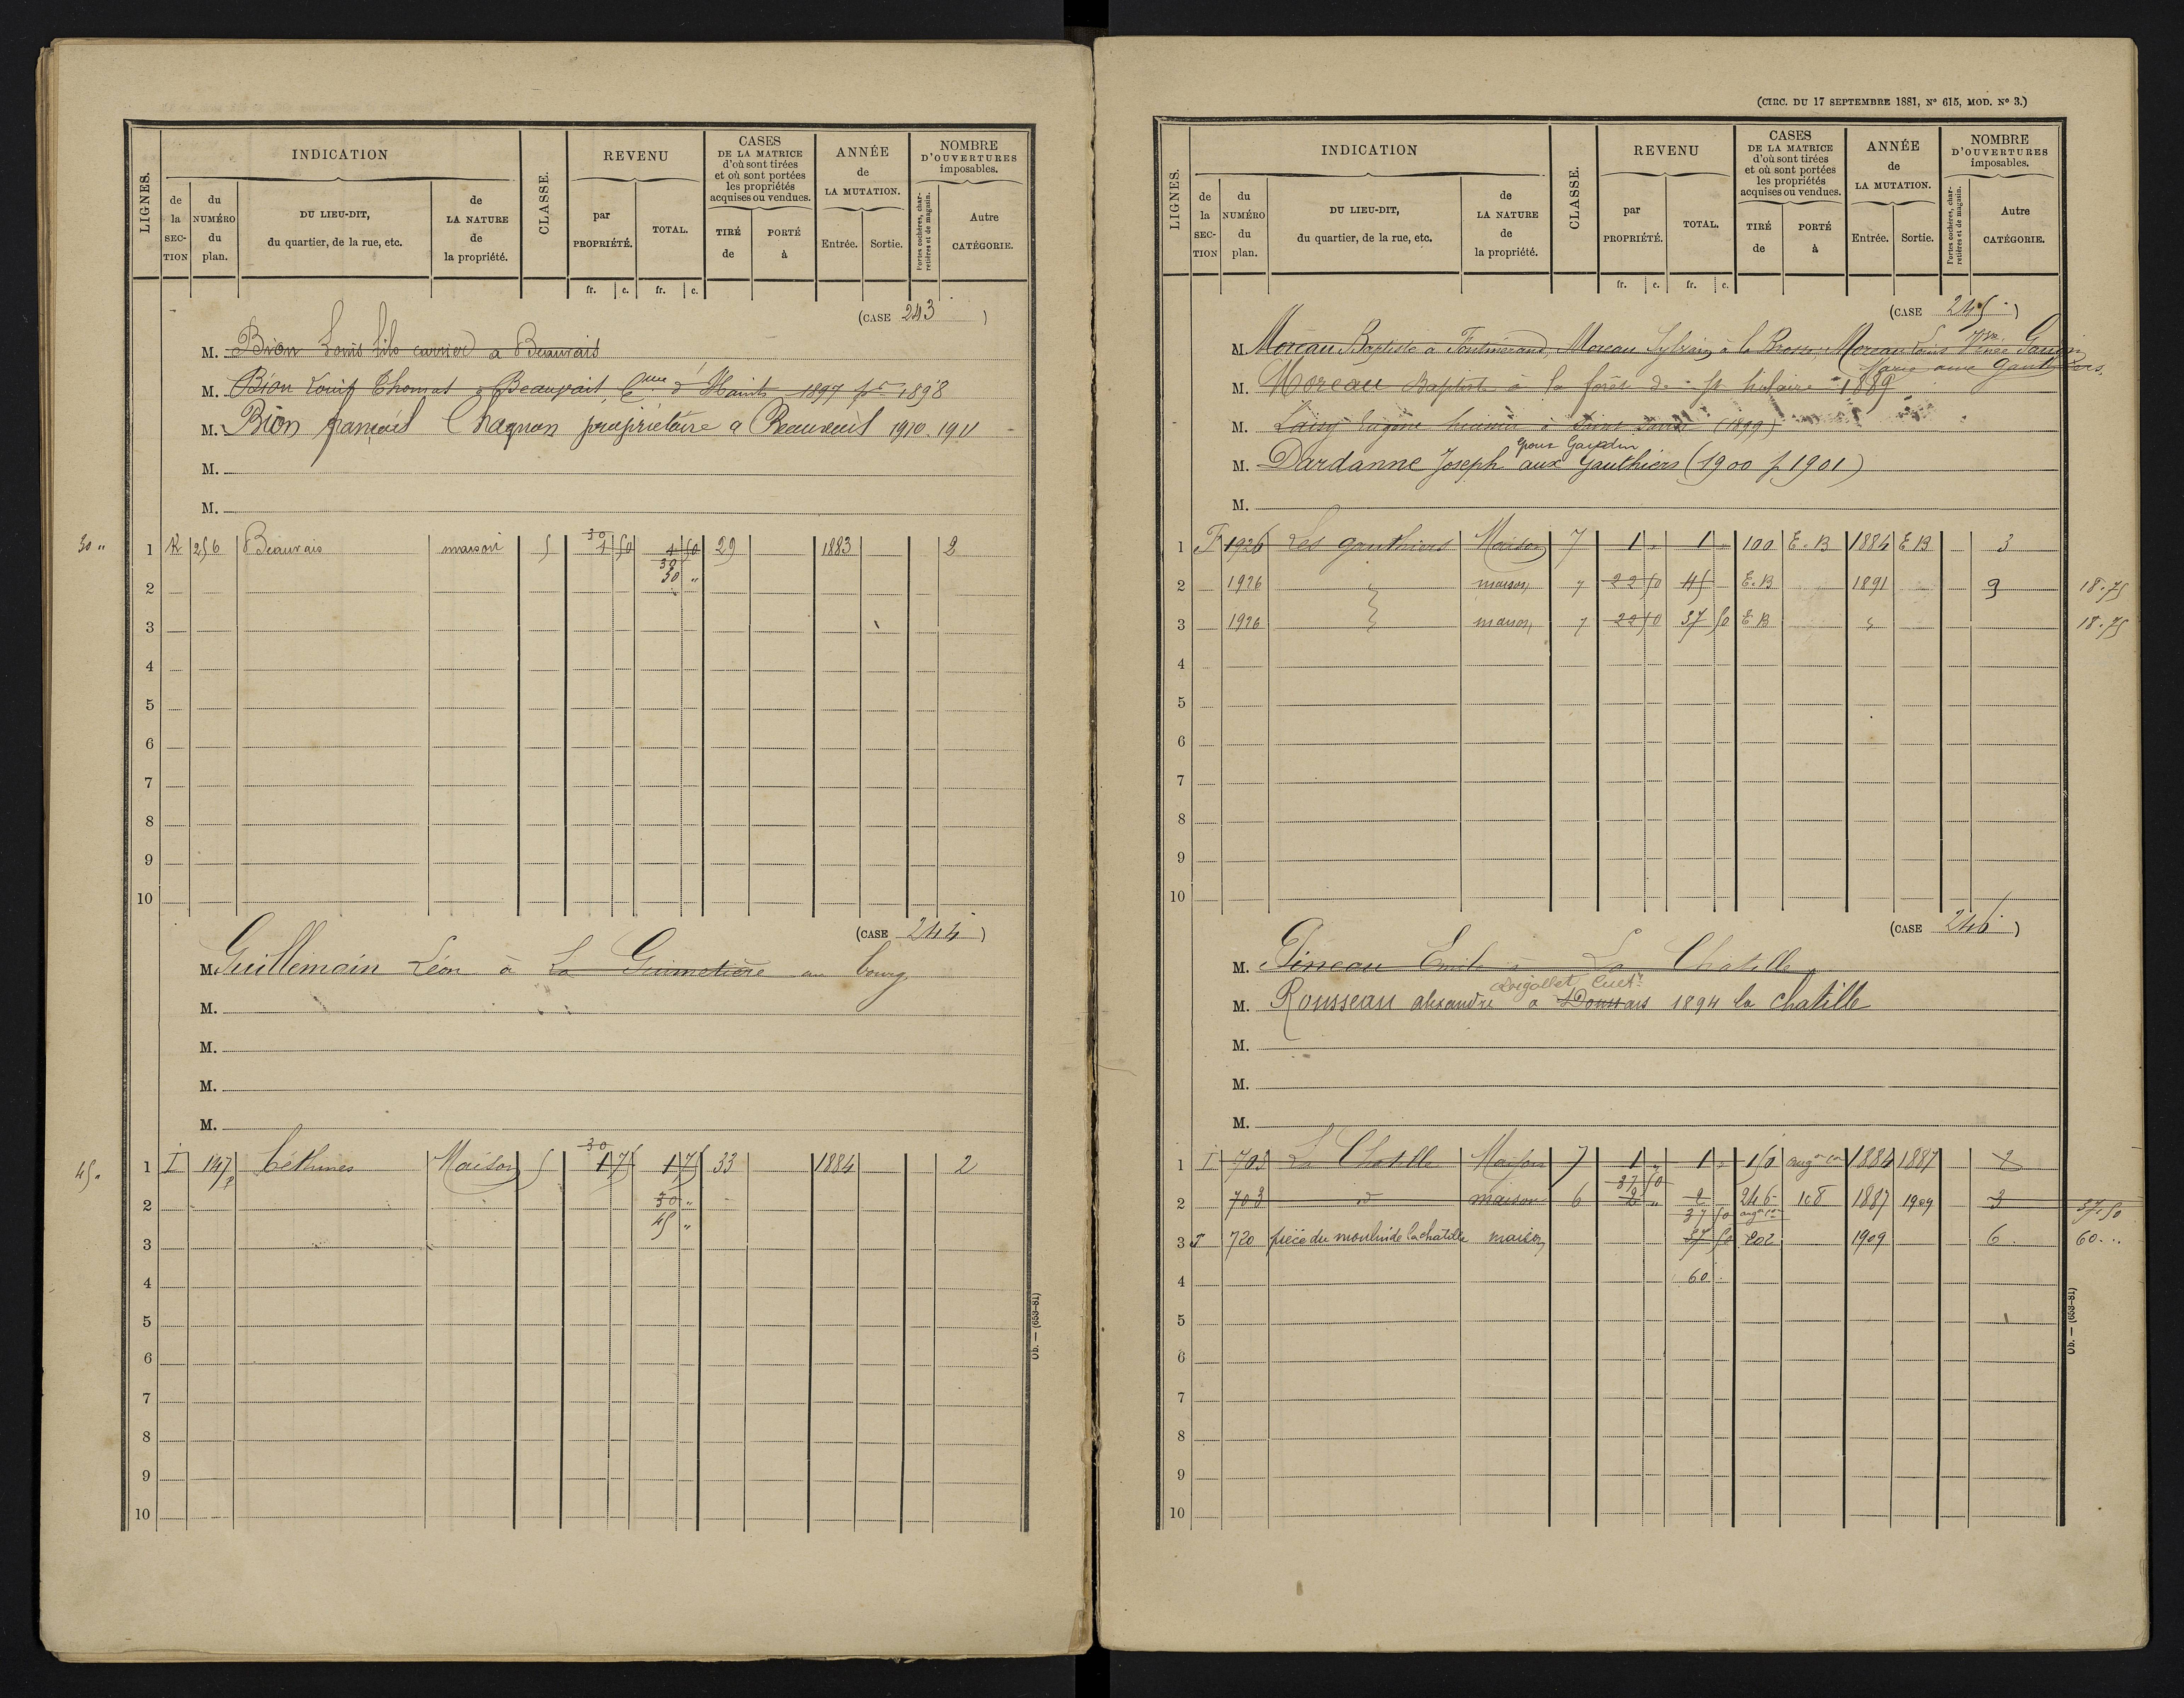 LIGNES.
INDICATION
de la SEC-TION
du NUMÉRO du plan.
DU LIEU-DIT, du quartier, de la rue, etc.
de LA NATURE de la propriété.
CLASSE.
REVENU
par PROPRIÉTÉ.
TOTAL.
fr. c. fr. c.
CASES DE LA MATRICE d'où sont tirées et où sont portées les propriétés acquises ou vendues.
TIRÉ de
PORTÉ à
ANNÉE de LA MUTATION.
Entrée. Sortie.
NOMBRE D'OUVERTURES imposables.
Portes cochères, charretières et de magasin.
Autre CATÉGORIE.
(CASE 243)
M. Bion Louis fils carrier a Beauvais
M. Bion Louis Thomas a Beauvais, Cne d'Haims 1897 pr 1898
M. Bion français Chagnon propriétaire a Beauvais 1910.1911
M.
M.
30 "
1 K 256 Beauvais maison 5 30 1 50 1 50 29 1883 2
30
30 "
2
3
4
5
6
7
8
9
10
(CASE 244)
M. Guillemain Léon à La Guimetière au bourg
M.
M.
M.
M.
45 "
1 I 147p béthines Maison 5 30 1 75 1 75 33 1884 2
2 30 "
45 "
3
4
5
6
7
8
9
10
Ob. — (653-81)
(CIRC. DU 17 SEPTEMBRE 1881, N° 615, MOD. N° 3.)
LIGNES.
INDICATION
de la SEC-TION
du NUMÉRO du plan.
DU LIEU-DIT, du quartier, de la rue, etc.
de LA NATURE de la propriété.
CLASSE.
REVENU
par PROPRIÉTÉ.
TOTAL.
fr. c. fr. c.
CASES DE LA MATRICE d'où sont tirées et où sont portées les propriétés acquises ou vendues.
TIRÉ de
PORTÉ à
ANNÉE de LA MUTATION.
Entrée. Sortie.
NOMBRE D'OUVERTURES imposables.
Portes cochères, charretières et de magasin.
Autre CATÉGORIE.
(CASE 245)
M. Moreau Baptiste à Moreau Sylvain à la Brosse, Moreau Louis Vve née
Marie aux Gauthiers
M. Moreau Baptiste à la forêt de St hilaire 1889
M. Eugène à Saint Savin (1899)
époux Gaudin
M. Dardanne Joseph aux Gauthiers (1900 p 1901)
M.
1 F 1926 Les gauthiers Maison 7 1 " 1 " 100 E.B 1884 EB 3
2 1926 " maison 7 22 50 45 E.B 1891 3 18.75
3 1926 " maison 7 22 50 37 50 EB " 18.75
4
5
6
7
8
9
10
(CASE 246)
M. Pineau Emile à La Chatille
cult.
M. Rousseau alexandre a 1894 la chatille
M.
M.
M.
1 I 703 La Chatille Maison 7 1 " 1 " 150 augon con 1884 1887 2
37 50
2 703 d maison 6 2 " 2 246 108 1887 1909 3 37.50
37 50 augon con
3 F 720 pièce du moulin de la chatille maison 37 50 202 1909 6 60 "
4 60
5
6
7
8
9
10
Ob. — (653-81)